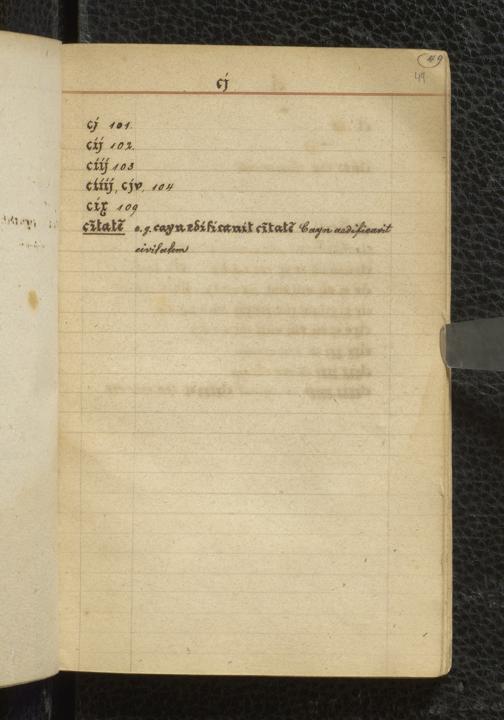 49
49
cj
cj 101.
cij 102.
ciij 103
ciiij, cjv, 104
cix 109
cītatē e.g. cayn edificauit cītatē Cayn aedificavit
civitatem